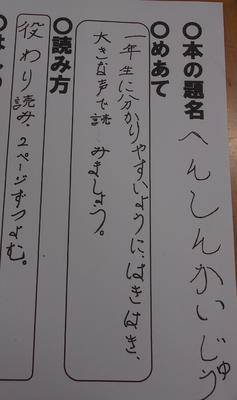 ○本の題名
へんしんかいじゅう
○めあて
一年生に分かりやすいように、はきはき、
大きな声で読みましょう。
○読み方
役わり読み、2ページずつよむ。